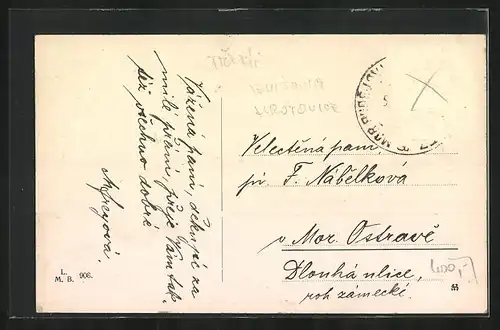 Vážená paní, děkuji za
milé přání, přeje Vám tak-
též všechno dobré
L.
M. B. 906.
Velectěná paní,
pí. F. Nábělková
v Mor. Ostravě
Dlouhá ulice,
roh zámecké.
400,-